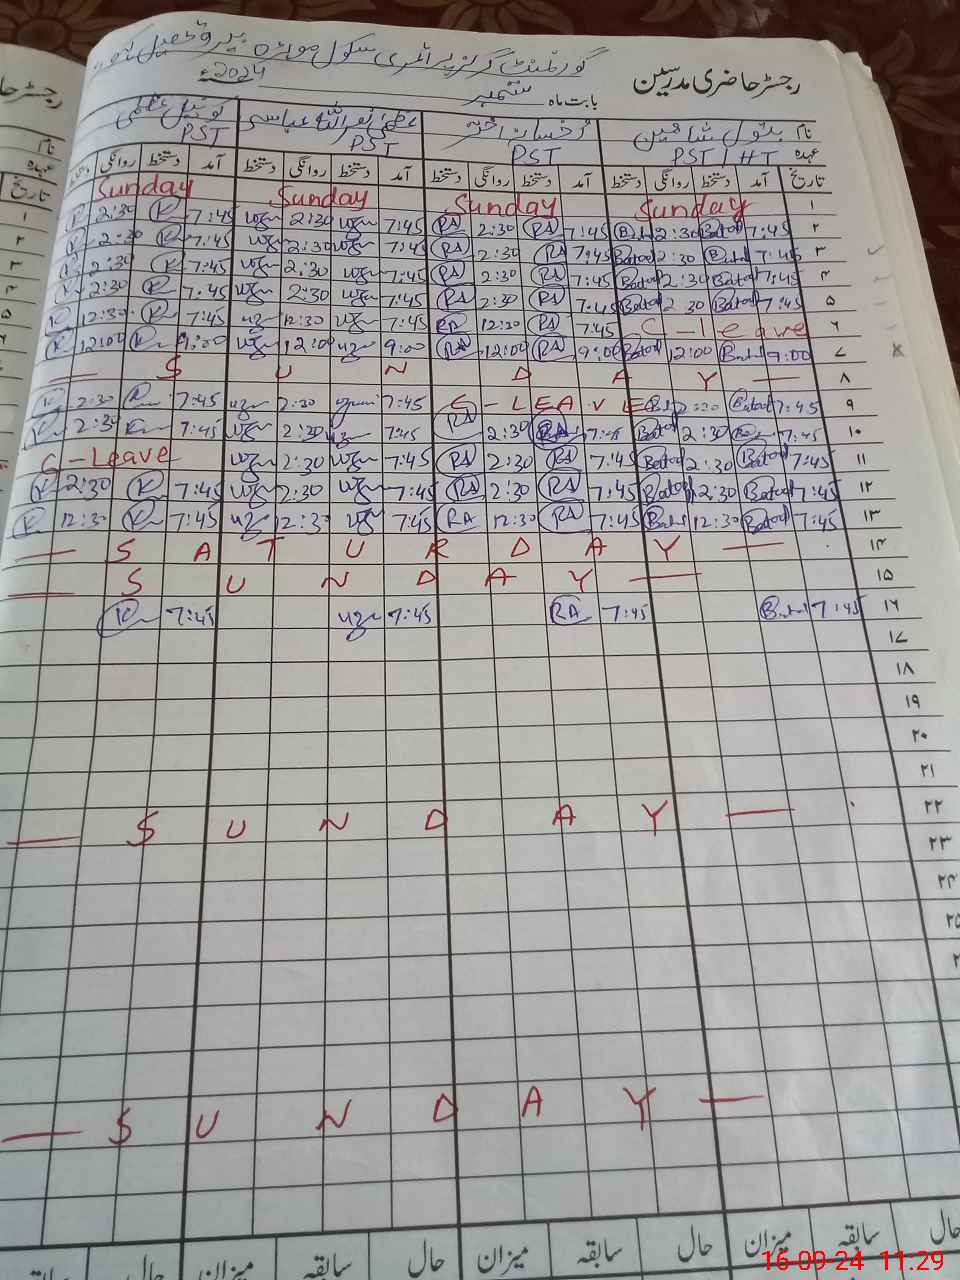 رجسٹر حاضری مدرسین گورنمنٹ گرلز پرائمری سکول موہڑہ
بابت ماہ ستمبر 2024ء
نام بتول شاہین رخسانہ اختر عظمیٰ نصر اللہ عباسی
عہدہ PST / HT PST PST PST
تاریخ آمد دستخط روانگی دستخط آمد دستخط روانگی دستخط آمد دستخط روانگی دستخط آمد دستخط روانگی دستخط
۱ Sunday Sunday Sunday Sunday
۲ 7:45 Batool 2:30 Batool 7:45 RA 2:30 RA 7:45 2:30 7:45 K 2:30 K
۳ 7:45 Batool 2:30 Batool 7:45 RA 2:30 RA 7:45 2:30 7:45 K 2:30 K
۴ 7:45 Batool 2:30 Batool 7:45 RA 2:30 RA 7:45 2:30 7:45 K 2:30 K
۵ 7:45 Batool 2:30 Batool 7:45 RA 2:30 RA 7:45 2:30 7:45 K 2:30 K
۶ C - leave 7:45 RA 12:30 RA 7:45 12:30 7:45 K 12:30 K
۷ 9:00 Batool 12:00 Batool 9:00 RA 12:00 RA 9:00 12:00 9:00 K 12:00 K
۸ — S U N D A Y —
۹ 7:45 Batool 2:30 C - LEAVE 7:45 2:30 7:45 K 2:30 K
۱۰ 7:45 2:30 Batool 7:45 RA 2:30 RA 7:45 2:30 7:45 K 2:30 K
۱۱ 7:45 Batool 2:30 Batool 7:45 RA 2:30 RA 7:45 2:30 C - Leave
۱۲ 7:45 Batool 2:30 Batool 7:45 RA 2:30 RA 7:45 2:30 7:45 K 2:30 K
۱۳ 7:45 Batool 12:30 7:45 RA 12:30 RA 7:45 12:30 7:45 K 12:30 K
۱۴ — S A T U R D A Y —
۱۵ — S U N D A Y —
۱۶ 7:45 7:45 RA 7:45 7:45 K
۱۷
۱۸
۱۹
۲۰
۲۱
۲۲ — S U N D A Y —
۲۳
۲۴
۲۵
— S U N D A Y —
حال سابقہ میزان حال سابقہ میزان حال سابقہ میزان حال
16-09-24 11:29